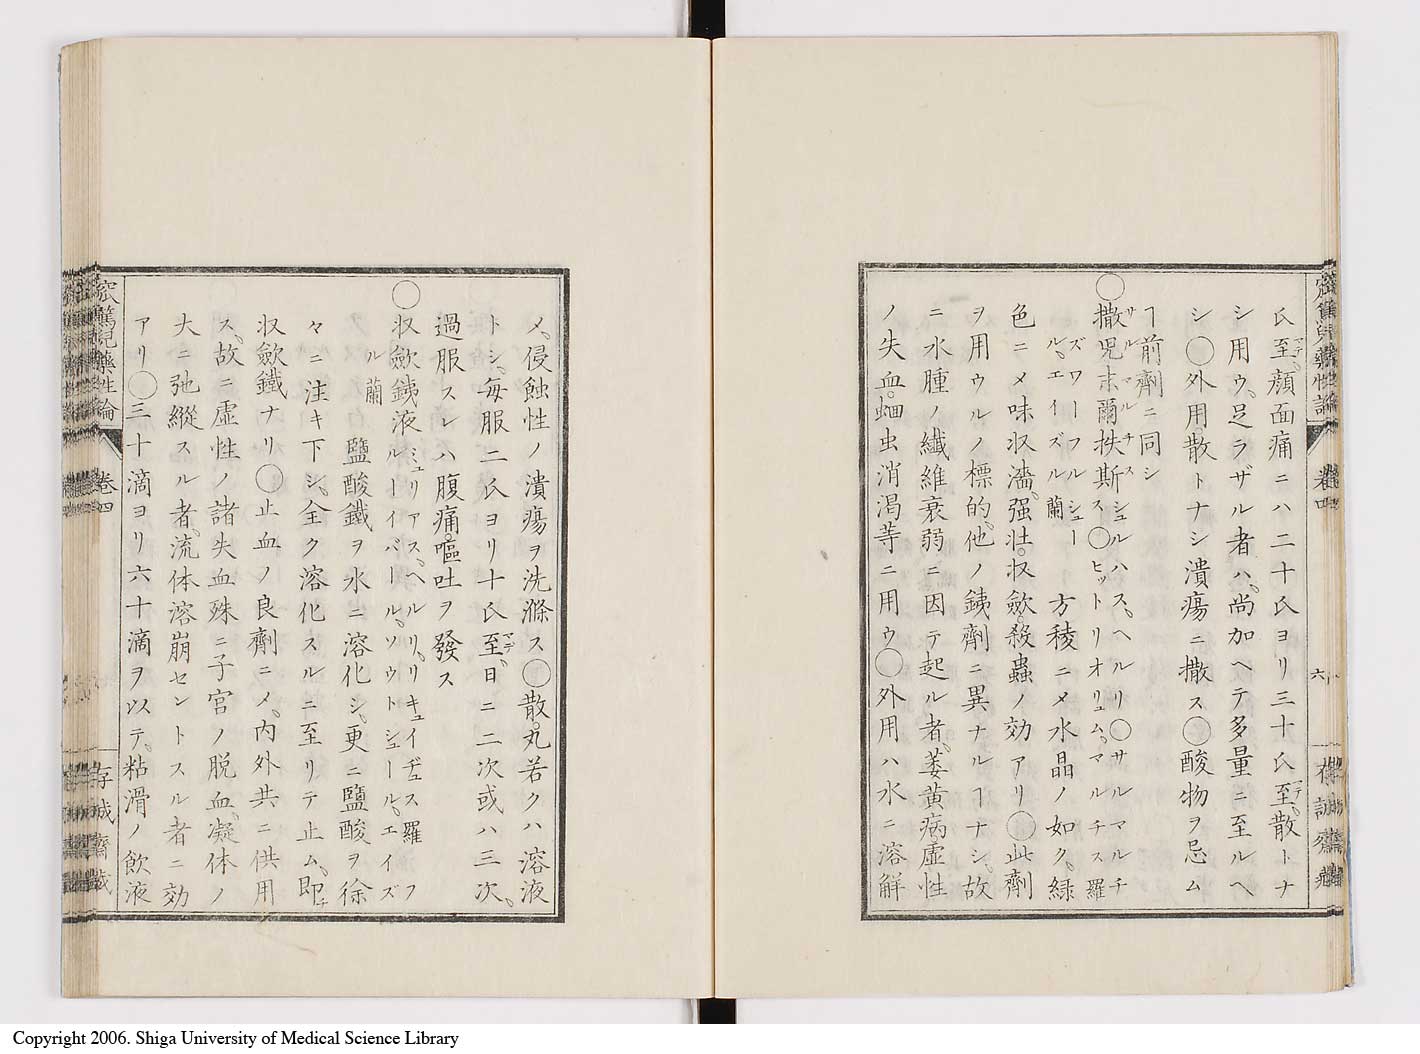 氏至マデ。顔面痛ニハ二十氏ヨリ三十氏至マデ。散トナ
シ用ウ。足ラザル者ハ。尚加ヘテ多量ニ至ルヘ
シ○外用。散トナシ潰瘍ニ撒ス○酸物ヲ忌ム
ヿ前劑ニ同シ
○撒児末爾抶斯サルマルチス シュルハス。ヘルリ○サルマルチ
ス○ヒットリオリュム。マルチス羅
ズワーフルシュー
ル。エイズル蘭 方稜ニメ水晶ノ如ク。緑
色ニメ味収濇。强壮。収斂。殺蟲ノ効アリ○此劑
ヲ用ウルノ標的。他ノ鉄劑ニ異ナルヿナシ。故
ニ水腫ノ纎維衰弱ニ因テ起ル者。萎黄病。虚性
ノ失血。蛔虫消渇等ニ用ウ○外用ハ水ニ溶解
卷四
六
存誠齋藏
メ。侵蝕性ノ潰瘍ヲ洗滌ス○散。丸若クハ溶液
トシ。毎服二氏ヨリ十氏至マデ。日ニ二次或ハ三次。
過服スレハ腹痛。嘔吐ヲ發ス
○収斂鉄液 ミュリアス。ヘルリ。リキュイヂュス羅 フ
ルーイバール。ソウトシュール。エイズ
ル蘭
鹽酸鐵ヲ水ニ溶化シ。更ニ鹽酸ヲ徐
々ニ注キ下シ。全ク溶化スルニ至リテ止ム。即チ
収斂鐵ナリ○止血ノ良劑ニメ。内外共ニ供用
ス。故ニ虚性ノ諸失血殊ニ子宮ノ脱血。凝体ノ
大ニ弛縱スル者。流体溶崩セントスル者ニ効
アリ○三十滴ヨリ六十滴ヲ以テ。粘滑ノ飲液
窊篤兒藥性論
卷四
存誠齋藏
Copyright 2006. Shiga University of Medical Science Library